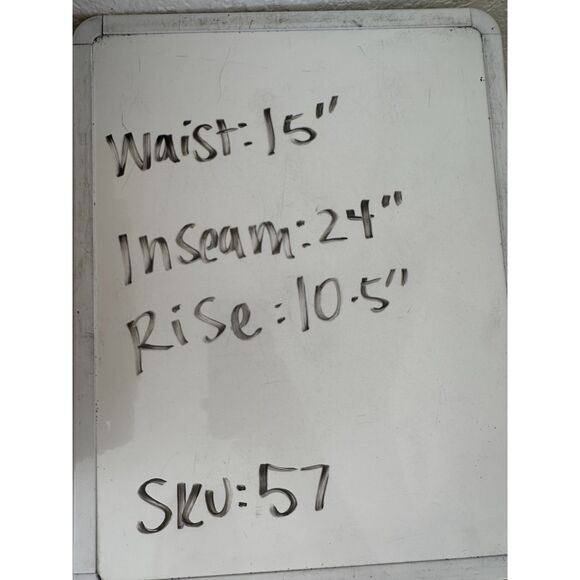 Waist: 15"
Inseam: 24"
Rise: 10.5"
SKU: 57